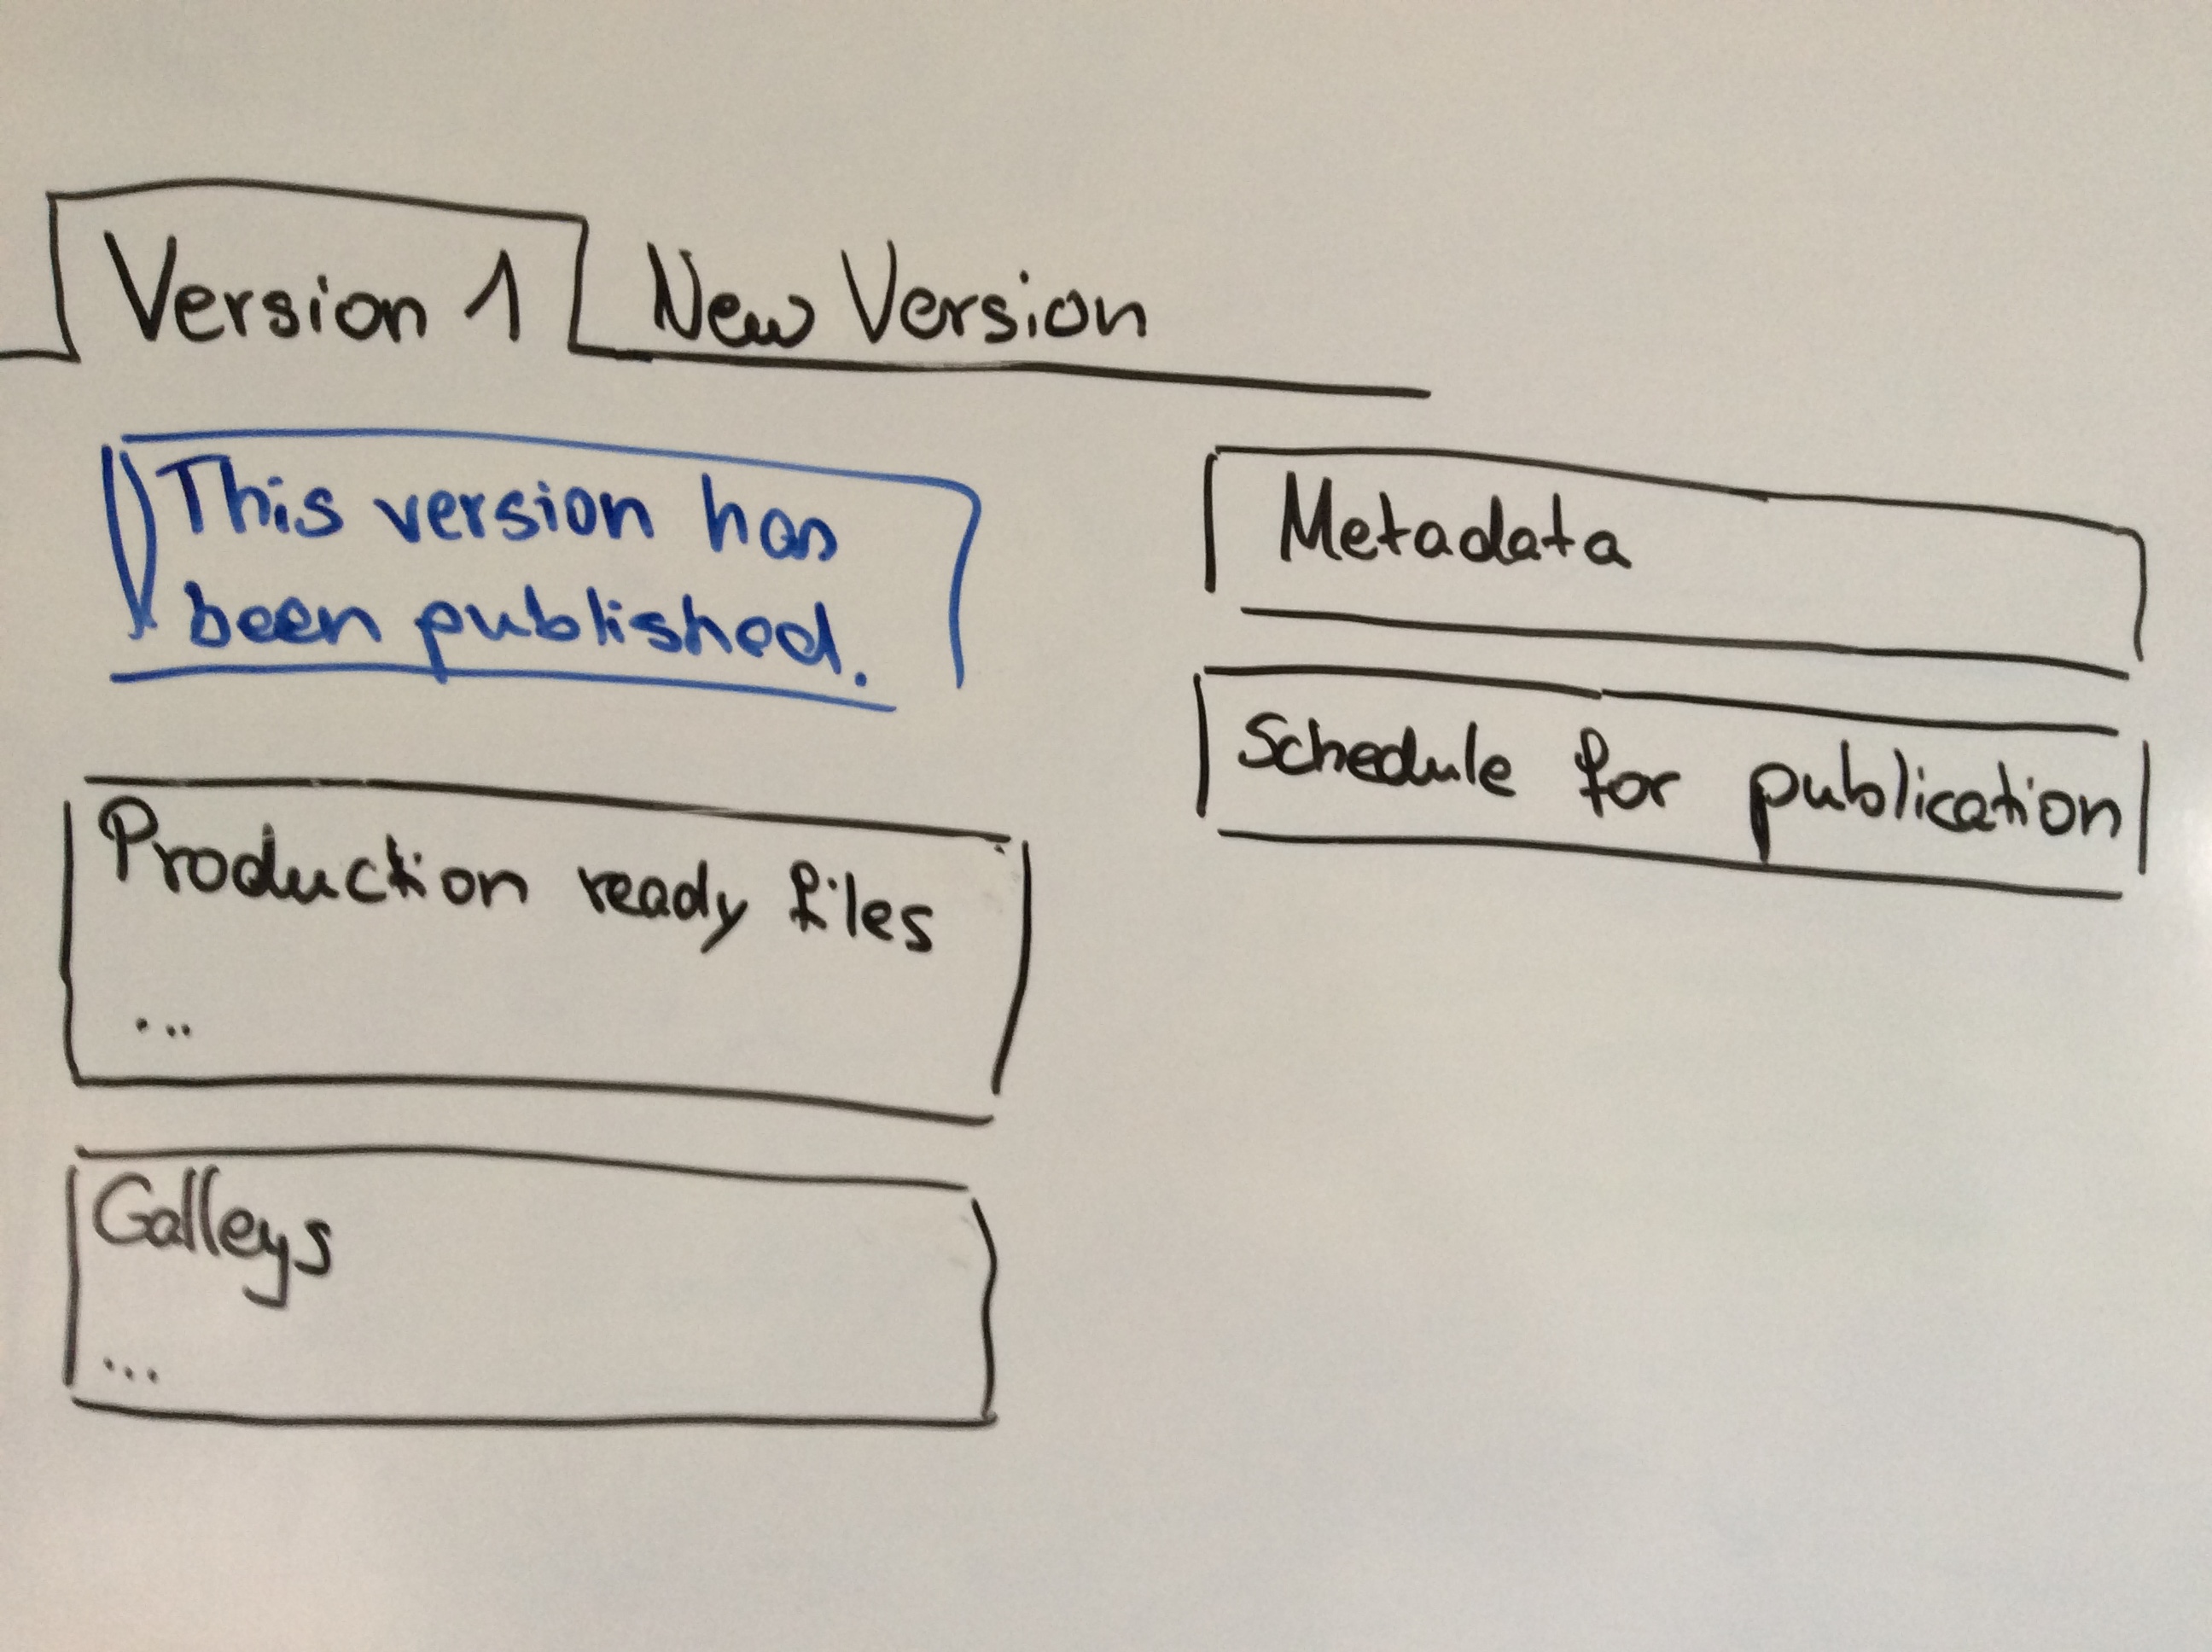 Version 1
New Version
This version has
been published.
Production ready files
...
Galleys
...
Metadata
Schedule for publication